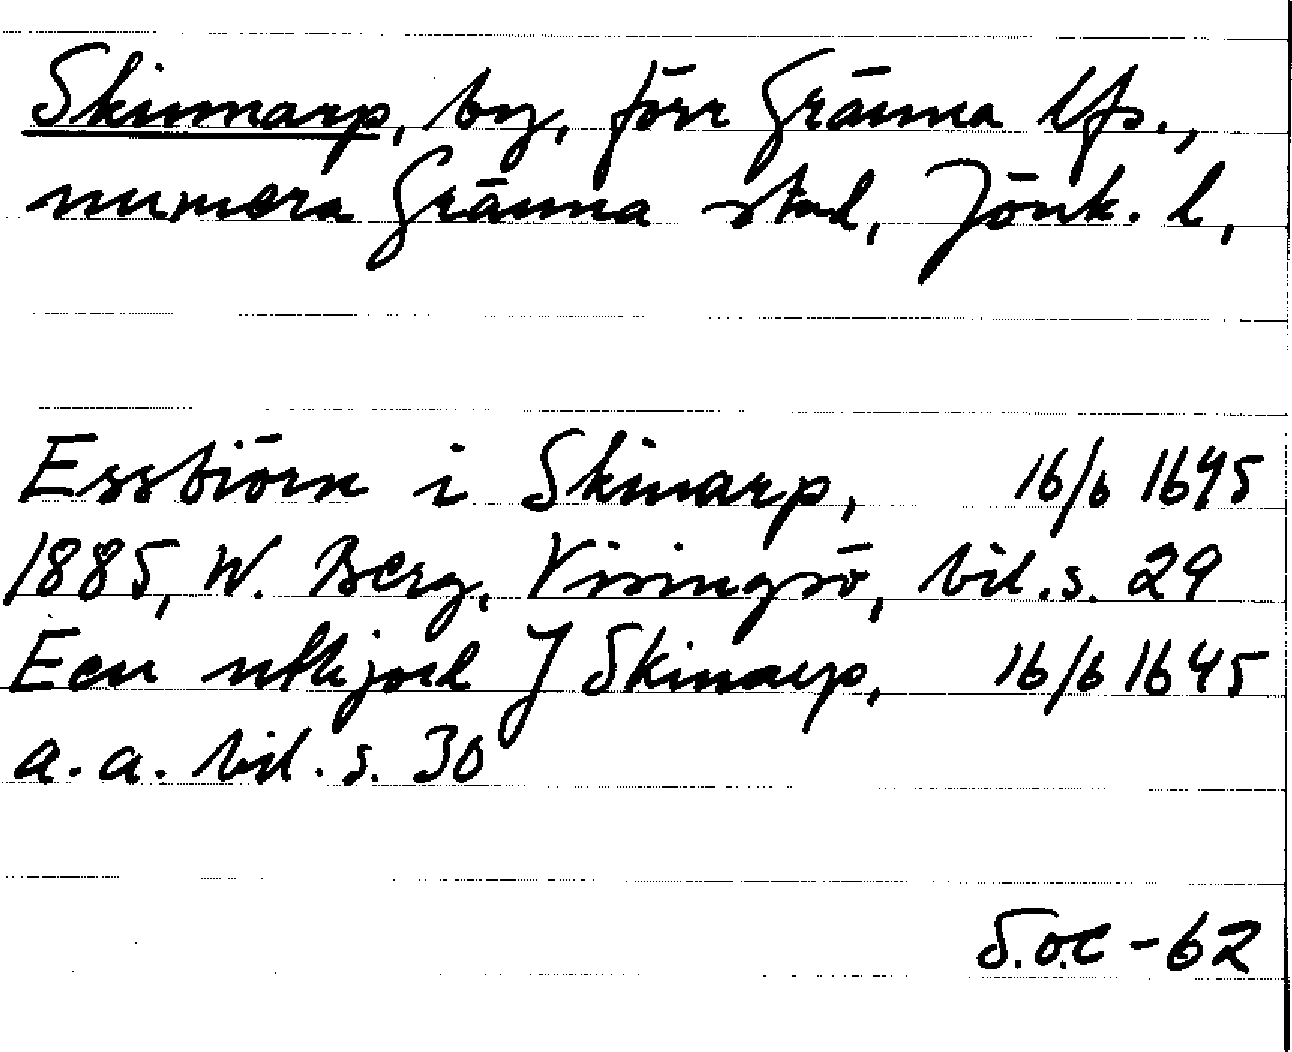 Skinnarp, by, förr Gränna lfs.,
numera Gränna stad, Jönk. l,
Essbiörn i Skinarp, 16/6 1645
1885, W. Berg, Visingsö, bil. s. 29
Een utkjord J Skinarp, 16/6 1645
a. a. bil. s. 30
S.O.C - 62